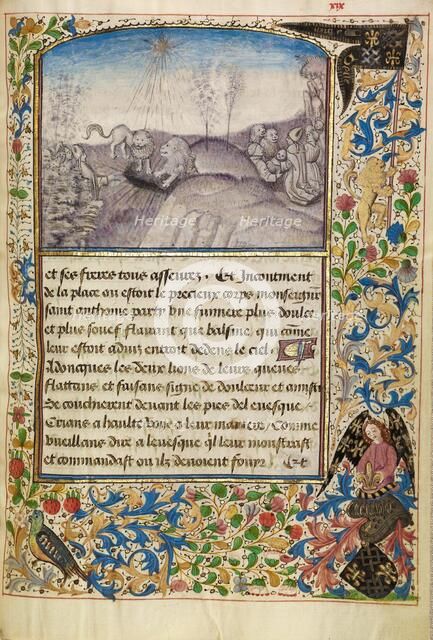 xix
et ses freres tous asseurez. Et Incontinent
de la place ou estoit le precieux corps monseigneur
saint anthoine party vne fumiere plus doulce
et plus souef flairant que balsme, qui comme
leur estoit aduis entroit dedens le ciel.
Adoncques les deux lions de leurs queues
flattans et faisans signe de doulceur et
se coucherent deuant les pies del euesque
Crians a haulte voix a leur maniere, Comme
vueillans dire a leuesque quil leur monstrast
et commandast ou ilz deuoient fouyr Et
Heritage
Heritage
Heritage
Heritage